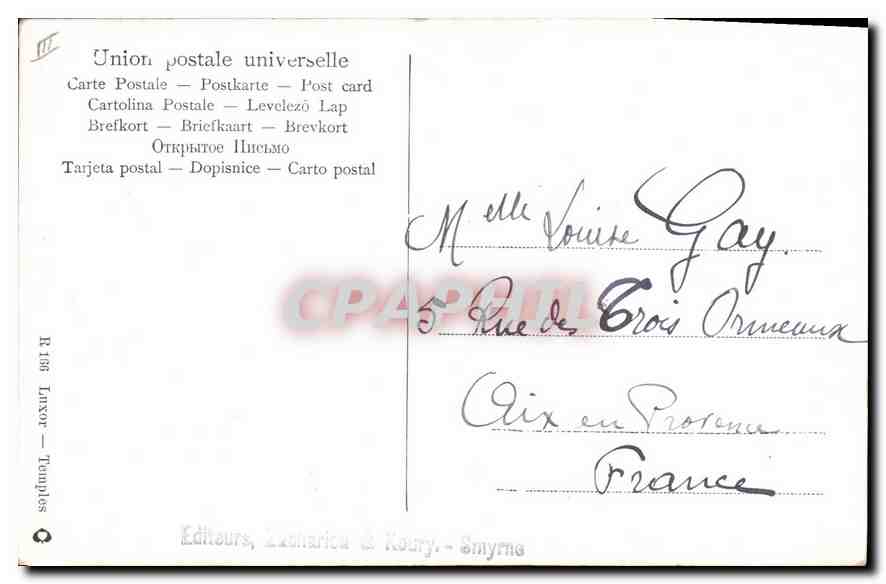 III
Union postale universelle
Carte Postale — Postkarte — Post card
Cartolina Postale — Levelező Lap
Brefkort — Briefkaart — Brevkort
Открытое Письмо
Tarjeta postal — Dopisnice — Carto postal
Melle Louise Gay.
5 Rue des Trois Ormeaux
Aix en Provence
France
R 166 Luxor — Temples
Editeurs, Zachariou & Koury. - Smyrne
CPAPHIL